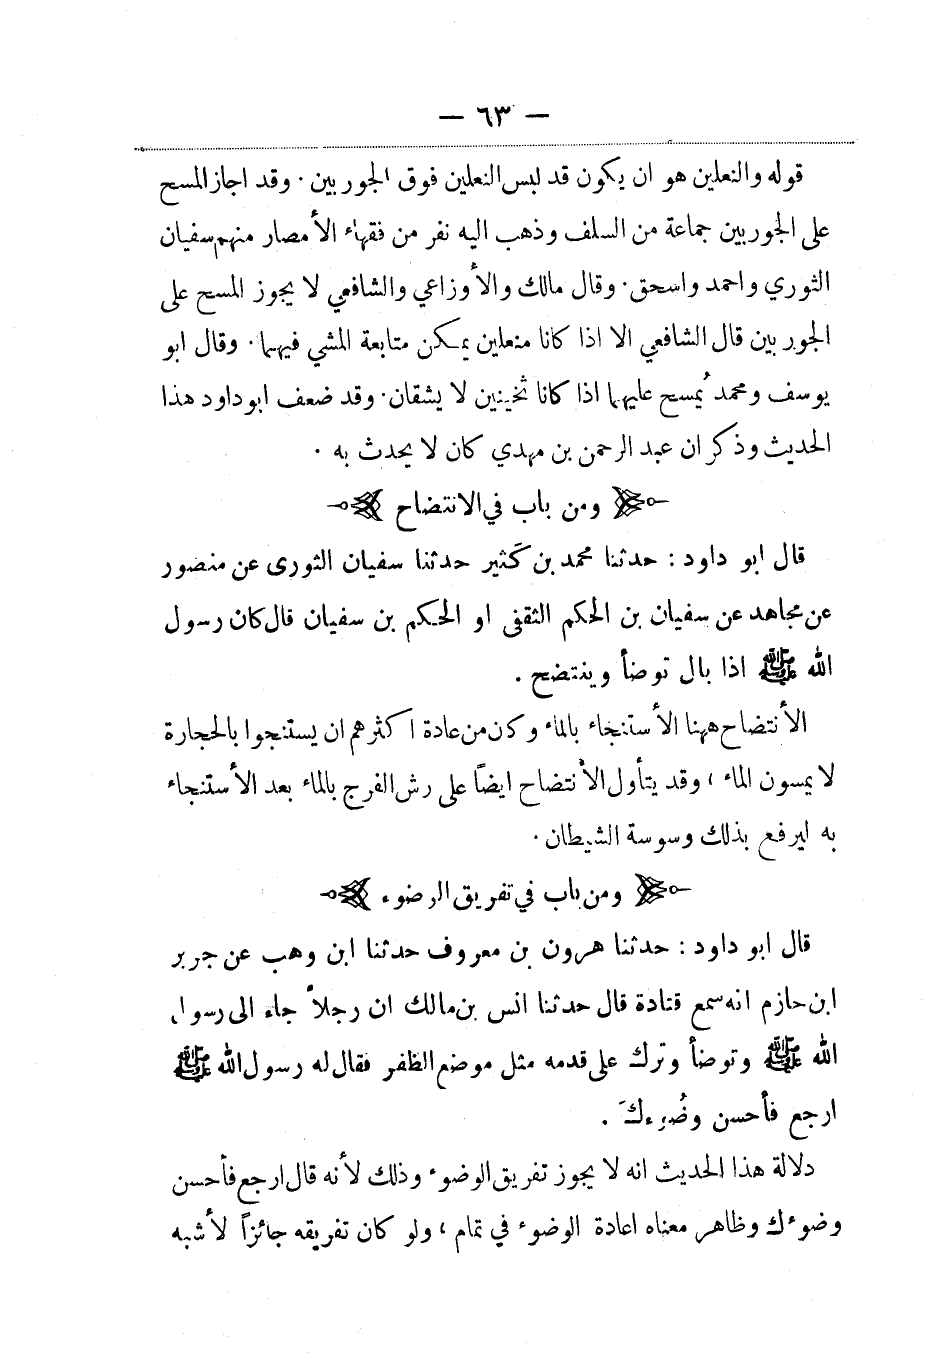 — ٦٣ —
قوله والنعلين هو ان يكون قد لبس النعلين فوق الجوربين . وقد اجاز المسح
على الجوربين جماعة من السلف وذهب اليه نفر من فقهاء الأمصار منهم سفيان
الثوري واحمد واسحق . وقال مالك والأوزاعي والشافعي لا يجوز المسح على
الجوربين قال الشافعي الا اذا كانا منعلين يمكن متابعة المشي فيهما . وقال ابو
يوسف ومحمد يُمسح عليهما اذا كانا ثخينين لا يشقان . وقد ضعف ابو داود هذا
الحديث وذكر ان عبد الرحمن بن مهدي كان لا يحدث به .
ومن باب في الانتضاح
قال ابو داود : حدثنا محمد بن كَثير حدثنا سفيان الثورى عن منصور
عن مجاهد عن سفيان بن الحكم الثقفى او الحكم بن سفيان قال كان رسول
الله ﷺ اذا بال توضأ وينتضح .
الأنتضاح ههنا الأستنجاء بالماء وكان من عادة اكثرهم ان يستنجوا بالحجارة
لا يمسون الماء ، وقد يتأول الأنتضاح ايضاً على رش الفرج بالماء بعد الأستنجاء
به ليرفع بذلك وسوسة الشيطان .
ومن باب في تفريق الوضوء
قال ابو داود : حدثنا هرون بن معروف حدثنا ابن وهب عن جرير
ابن حازم انه سمع قتادة قال حدثنا انس بن مالك ان رجلاً جاء الى رسول
الله ﷺ وتوضأ وترك على قدمه مثل موضع الظفر فقال له رسول الله ﷺ
ارجع فأحسن وضُوءكَ .
دلالة هذا الحديث انه لا يجوز تفريق الوضوء وذلك لأنه قال ارجع فأحسن
وضوءك وظاهر معناه اعادة الوضوء في تمام ، ولو كان تفريقه جائزاً لأشبه